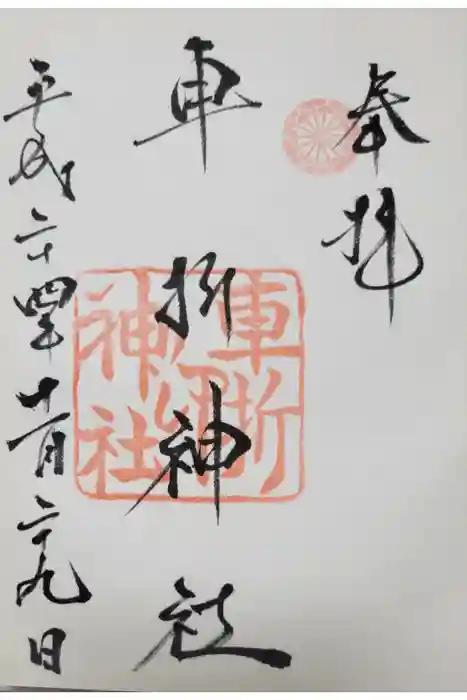 奉拝
車折神社
車折神社
平成二十四年十一月二十九日